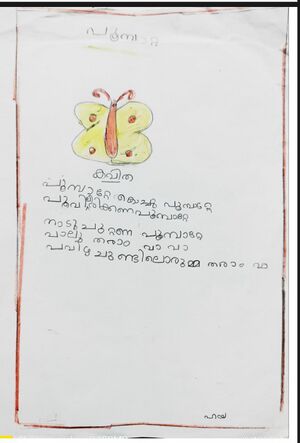 പൂമ്പാറ്റ
കവിത
പൂമ്പാറ്റേ കൊച്ചു പൂമ്പാറ്റേ
പൂവിരിക്കണ പൂമ്പാറ്റേ
നാടു ചുറ്റണ പൂമ്പാറ്റേ
പാലു തരാം വാ വാ
പവിഴചുണ്ടിലൊരുമ്മ തരാം വാ
ഹയ